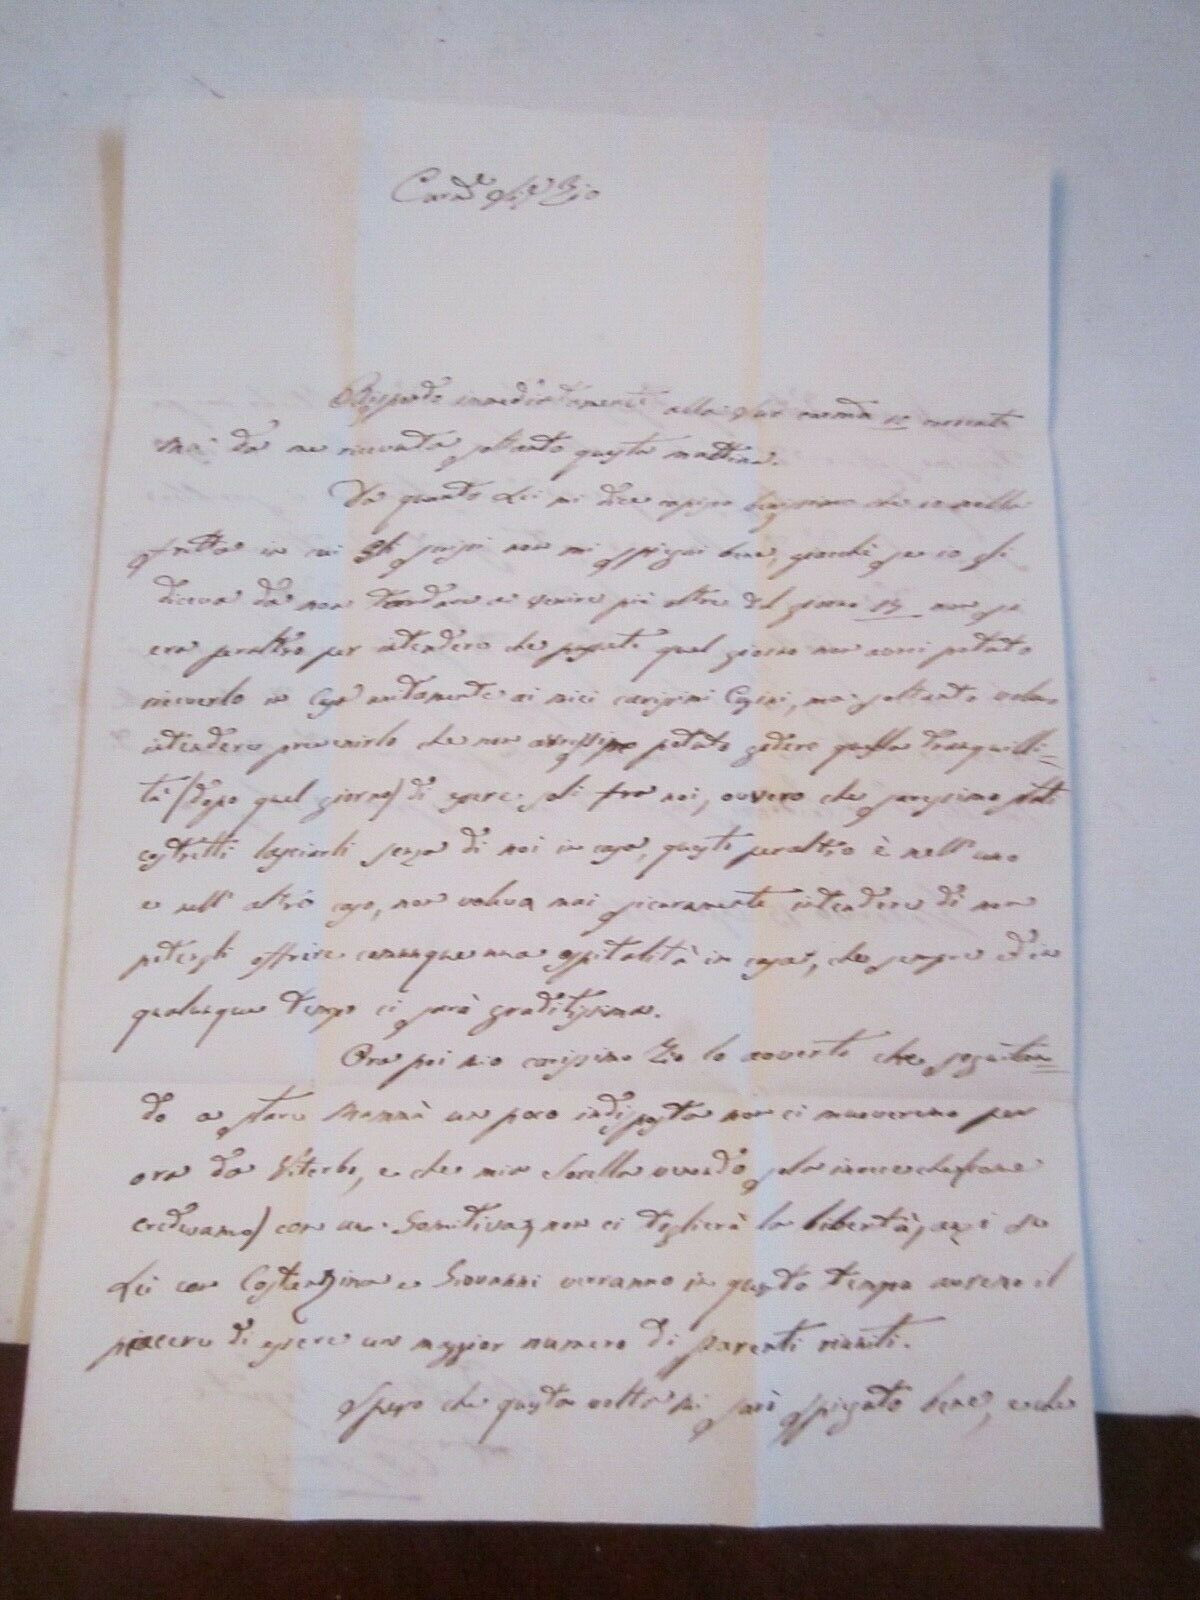 Car.mo Sig.r Zio
Rispondo immediatamente alla sua carma 12 corrente
ma da me ricevuta soltanto questa mattina.
Da quanto Lei mi dice capisco benissimo che io nella
fretta in cui gli scrissi non mi spiegai bene, giacchè se io gli
diceva da non tardare a venire più oltre del giorno 15 non si
era peraltro per intendere che passato quel giorno non avrei potuto
riceverlo in casa unitamente ai miei carissimi Cugini, ma soltanto
intendero prevenirlo che non avressimo potuto godere quella tranquilli=
tà (dopo quel giorno) di essere soli fra noi, ovvero che saressimo stati
costretti lasciarli senza di noi in casa, questo peraltro è nell'uno
e nell'altro caso, non voleva mai sicuramente intendere di non
potergli offrire comunque una ospitalità in casa, che sempre ed in
qualunque tempo ci sarà graditissima.
Ora poi mio carissimo Zio lo avverto che seguitan=
do a stare Mammà un poco indisposta non ci muoveremo per
ora da Viterbo, e che mia Sorella venendo sola invece che (come
credevamo) con una Comitiva, non ci toglierà la libertà, anzi se
Lei con Costanzina e Giovanni verranno in questo tempo avremo il
piacere di essere un maggior numero di Parenti riuniti.
Spero che questa volta mi sarò spiegato bene, e che